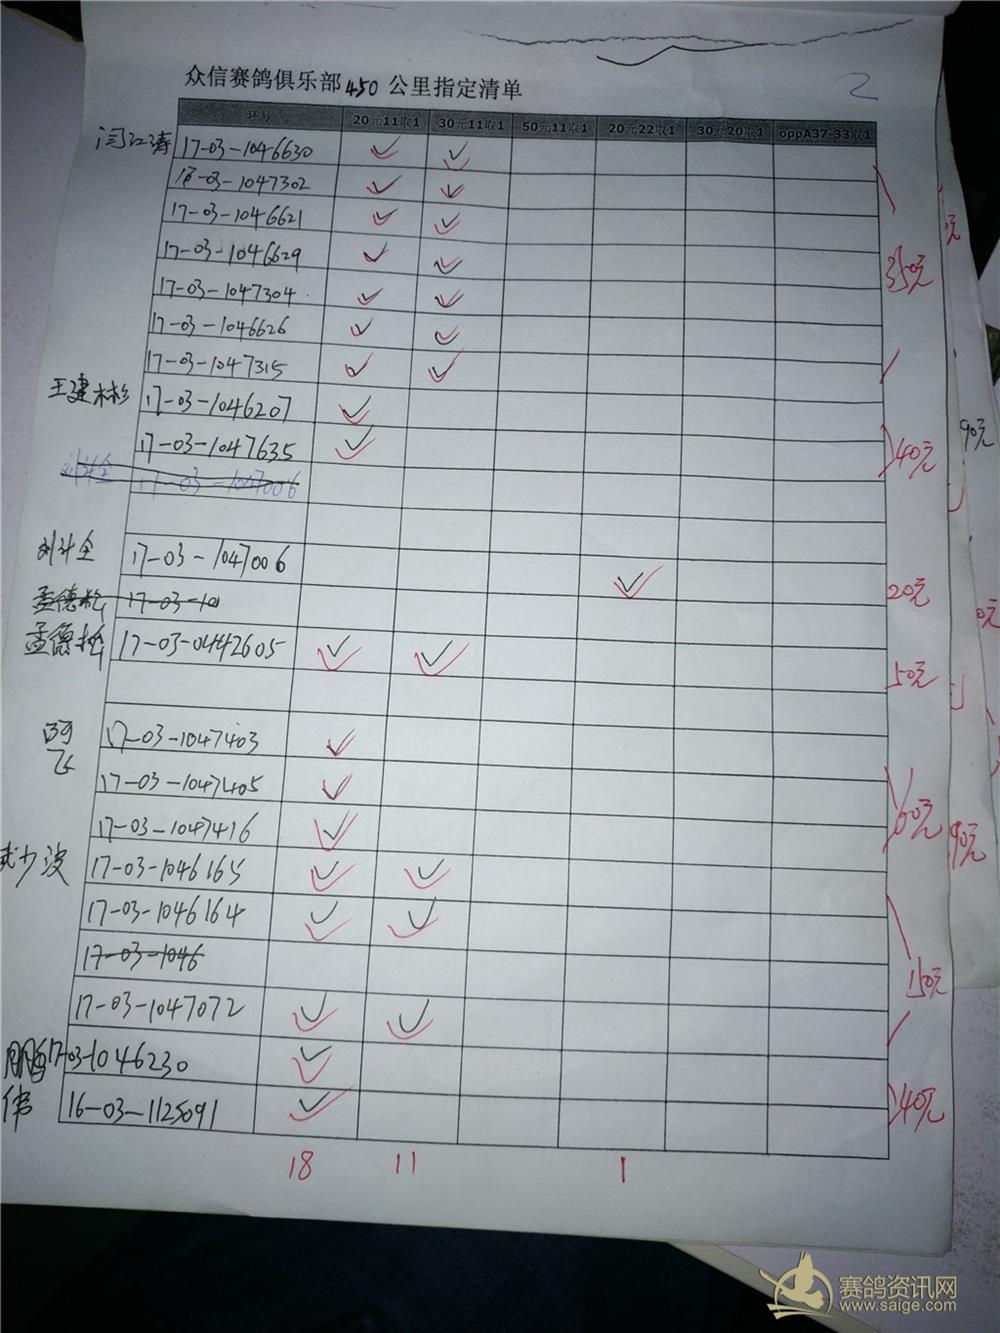 众信赛鸽俱乐部450公里指定清单
2
环号 20元11取1 30元11取1 50元11取1 20元22取1 30元20取1 oppA37-33取1
闫江涛 17-03-1046630 ✓ ✓
17-03-1047302 ✓ ✓
17-03-1046621 ✓ ✓
17-03-1046629 ✓ ✓ 350元
17-03-1047304 ✓ ✓
17-03-1046626 ✓ ✓
17-03-1047315 ✓ ✓
王建彬 17-03-1046207 ✓
17-03-1047635 ✓ 40元
刘斗全 17-03-1047006
刘斗全 17-03-1047006 ✓ 20元
孟德松 17-03-10
孟德松 17-03-0442605 ✓ ✓ 50元
阿飞 17-03-1047403 ✓
17-03-1047405 ✓ 60元
17-03-1047416 ✓
武少波 17-03-1046165 ✓ ✓
17-03-1046164 ✓ ✓
17-03-1046 150元
17-03-1047072 ✓ ✓
鹏伟 17-03-1046230 ✓
16-03-1125091 ✓ 40元
18 11 1
90元
90元
赛鸽资讯网
www.saige.com